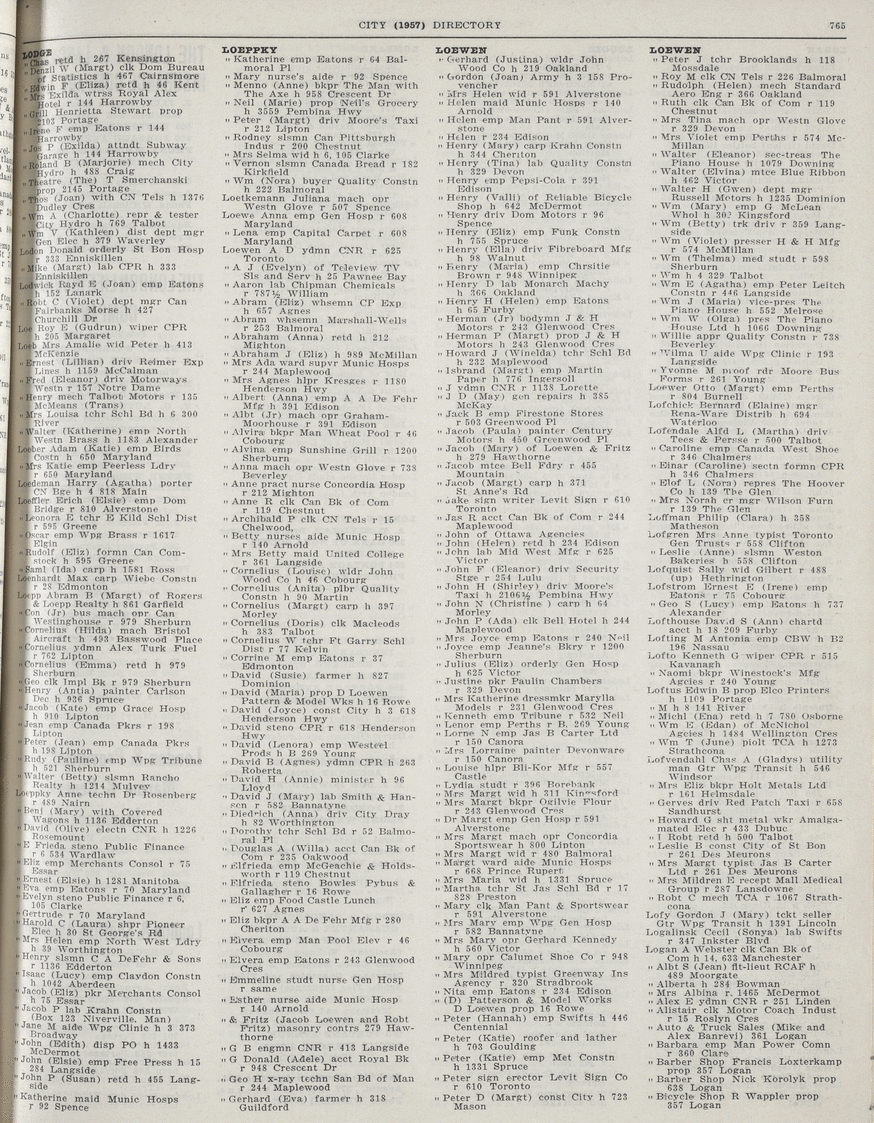 CITY (1957) DIRECTORY
765
LODGE
" Chas retd h 267 Kensington
" Denzil W (Margt) clk Dom Bureau
of Statistics h 467 Cairnsmore
" Edwin F (Eliza) retd h 46 Kent
" Mrs Exilda wtrss Royal Alex
Hotel r 144 Harrowby
" Grill Henrietta Stewart prop
2103 Portage
" Irene F emp Eatons r 144
Harrowby
" Jos P (Exilda) attndt Subway
Garage h 144 Harrowby
" Roland B (Marjorie) mech City
Hydro h 488 Craig
" Theatre (The) T Smerchanski
prop 2145 Portage
" Thos (Joan) with CN Tels h 1376
Dudley Cres
" Wm A (Charlotte) repr & tester
City Hydro h 769 Talbot
" Wm V (Kathleen) dist dept mgr
Gen Elec h 379 Waverley
Lodon Donald orderly St Bon Hosp
r 333 Enniskillen
" Mike (Margt) lab CPR h 333
Enniskillen
Lodwick Rayd E (Joan) emp Eatons
h 152 Lanark
" Robt C (Violet) dept mgr Can
Fairbanks Morse h 427
Churchill Dr
Loe Roy E (Gudrun) wiper CPR
h 205 Margaret
Loeb Mrs Amalie wid Peter h 413
McKenzie
" Ernest (Lillian) driv Reimer Exp
Lines h 1159 McCalman
" Fred (Eleanor) driv Motorways
Westn r 157 Notre Dame
" Henry mech Talbot Motors r 135
McMeans (Trans)
" Mrs Louisa tchr Schl Bd h 6 300
River
" Walter (Katherine) emp North
Westn Brass h 1183 Alexander
Loeber Adam (Katie) emp Birds
Costn h 650 Maryland
" Mrs Katie emp Peerless Ldry
r 650 Maryland
Loedeman Harry (Agatha) porter
CN Bge h 4 818 Main
Loeffler Erich (Elsie) emp Dom
Bridge r 810 Alverstone
" Leonora E tchr E Kild Schl Dist
r 595 Greene
" Oscar emp Wpg Brass r 1617
Elgin
" Rudolf (Eliz) formn Can Com-
stock h 595 Greene
" Saml (Ida) carp h 1581 Ross
Loenhardt Max carp Wiebe Constn
r 28 Edmonton
Loepp Abram B (Margt) of Rogers
& Loepp Realty h 861 Garfield
" Con (Jr) bus mach opr Can
Westinghouse r 979 Sherburn
" Cornelius (Hilda) mach Bristol
Aircraft h 493 Basswood Place
" Cornelius ydmn Alex Turk Fuel
r 762 Lipton
" Cornelius (Emma) retd h 979
Sherburn
" Geo clk Impl Bk r 979 Sherburn
" Henry (Antia) painter Carlson
Dec h 936 Spruce
" Jacob (Kate) emp Grace Hosp
h 910 Lipton
" Jean emp Canada Pkrs r 198
Lipton
" Peter (Jean) emp Canada Pkrs
h 198 Lipton
" Rudy (Pauline) emp Wpg Tribune
h 521 Sherburn
" Walter (Betty) slsmn Rancho
Realty h 1214 Mulvey
Loeppky Anne techn Dr Rosenberg
r 489 Nairn
" Beni (Mary) with Covered
Wagons h 1136 Edderton
" David (Olive) electn CNR h 1226
Rosemount
" E Frieda steno Public Finance
r 6 534 Wardlaw
" Eliz emp Merchants Consol r 75
Essar
" Ernest (Elsie) h 1281 Manitoba
" Eva emp Eatons r 70 Maryland
" Evelyn steno Public Finance r 6,
105 Clarke
" Gertrude r 70 Maryland
" Harold C (Laura) shpr Pioneer
Elec h 30 St George's Rd
" Mrs Helen emp North West Ldry
h 39 Worthington
" Henry slsmn C A DeFehr & Sons
r 1136 Edderton
" Isaac (Lucy) emp Claydon Constn
h 1042 Aberdeen
" Jacob (Eliz) pkr Merchants Consol
h 75 Essar
" Jacob P lab Krahn Constn
(Box 123 Niverville, Man)
" Jane M aide Wpg Clinic h 3 373
Broadway
" John (Edith) disp PO h 1433
McDermot
" John (Elsie) emp Free Press h 15
284 Langside
" John P (Susan) retd h 455 Lang-
side
" Katherine maid Munic Hosps
r 92 Spence
LOEPPKY
" Katherine emp Eatons r 64 Bal-
moral Pl
" Mary nurse's aide r 92 Spence
" Menno (Anne) bkpr The Man with
The Axe h 958 Crescent Dr
" Neil (Marie) prop Neil's Grocery
h 3559 Pembina Hwy
" Peter (Margt) driv Moore's Taxi
r 212 Lipton
" Rodney slsmn Can Pittsburgh
Indus r 200 Chestnut
" Mrs Selma wid h 6, 105 Clarke
" Vernon slsmn Canada Bread r 182
Kirkfield
" Wm (Nora) buyer Quality Constn
h 222 Balmoral
Loetkemann Juliana mach opr
Westn Glove r 507 Spence
Loewe Anna emp Gen Hosp r 608
Maryland
" Lena emp Capital Carpet r 608
Maryland
Loewen A D ydmn CNR r 625
Toronto
" A J (Evelyn) of Teleview TV
Sls and Serv h 25 Pawnee Bay
" Aaron lab Chipman Chemicals
r 787½ William
" Abram (Eliz) whsemn CP Exp
h 657 Agnes
" Abram whsemn Marshall-Wells
r 253 Balmoral
" Abraham (Anna) retd h 212
Mighton
" Abraham J (Eliz) h 989 McMillan
" Mrs Ada ward supr Munic Hosps
r 244 Maplewood
" Mrs Agnes hlpr Kresges r 1180
Henderson Hwy
" Albert (Anna) emp A A De Fehr
Mfg h 391 Edison
" Albt (Jr) mach opr Graham-
Moorhouse r 391 Edison
" Alvira bkpr Man Wheat Pool r 46
Cobourg
" Alvina emp Sunshine Grill r 1200
Sherburn
" Anna mach opr Westn Glove r 738
Beverley
" Anne pract nurse Concordia Hosp
r 212 Mighton
" Anne R clk Can Bk of Com
r 119 Chestnut
" Archibald P clk CN Tels r 15
Chelwood,
" Betty nurses aide Munic Hosp
r 140 Arnold
" Mrs Betty maid United College
r 361 Langside
" Cornelius (Louise) wldr John
Wood Co h 46 Cobourg
" Cornelius (Anita) plbr Quality
Constn h 90 Martin
" Cornelius (Margt) carp h 397
Morley
" Cornelius (Doris) clk Macleods
h 383 Talbot
" Cornelius W tchr Ft Garry Schl
Dist r 77 Kelvin
" Corrine M emp Eatons r 37
Edmonton
" David (Susie) farmer h 827
Dominion
" David (Maria) prop D Loewen
Pattern & Model Wks h 16 Rowe
" David (Joyce) const City h 3 618
Henderson Hwy
" David steno CPR r 618 Henderson
Hwy
" David (Lenora) emp Westeel
Prods h B 269 Young
" David B (Agnes) ydmn CPR h 263
Roberta
" David H (Annie) minister h 96
Lloyd
" David J (Mary) lab Smith & Han-
sen r 582 Bannatyne
" Diedrich (Anna) driv City Dray
h 82 Worthington
" Dorothy tchr Schl Bd r 52 Balmo-
ral Pl
" Douglas A (Willa) acct Can Bk of
Com r 235 Oakwood
" Elfrieda emp McGeachie & Holds-
worth r 119 Chestnut
" Elfrieda steno Bowes Pybus &
Gallagher r 16 Rowe
" Eliz emp Food Castle Lunch
r 627 Agnes
" Eliz bkpr A A De Fehr Mfg r 280
Cheriton
" Elvera emp Man Pool Elev r 46
Cobourg
" Elvera emp Eatons r 243 Glenwood
Cres
" Emmeline studt nurse Gen Hosp
r same
" Esther nurse aide Munic Hosp
r 140 Arnold
" & Fritz (Jacob Loewen and Robt
Fritz) masonry contrs 279 Haw-
thorne
" G B engmn CNR r 413 Langside
" G Donald (Adele) acct Royal Bk
r 948 Crescent Dr
" Geo H x-ray techn San Bd of Man
r 244 Maplewood
" Gerhard (Eva) farmer h 318
Guildford
LOEWEN
" Gerhard (Justina) wldr John
Wood Co h 219 Oakland
" Gordon (Joan) Army h 3 158 Pro-
vencher
" Mrs Helen wid r 591 Alverstone
" Helen maid Munic Hosps r 140
Arnold
" Helen emp Man Pant r 591 Alver-
stone
" Helen r 234 Edison
" Henry (Mary) carp Krahn Constn
h 344 Cheriton
" Henry (Tina) lab Quality Constn
h 329 Devon
" Henry emp Pepsi-Cola r 391
Edison
" Henry (Valli) of Reliable Bicycle
Shop h 642 McDermot
" Henry driv Dom Motors r 96
Spence
" Henry (Eliz) emp Funk Constn
h 755 Spruce
" Henry (Ella) driv Fibreboard Mfg
h 98 Walnut
" Henry (Maria) emp Chrsitie
Brown r 948 Winnipeg
" Henry D lab Monarch Machy
h 366 Oakland
" Henry H (Helen) emp Eatons
h 65 Furby
" Herman (Jr) bodymn J & H
Motors r 243 Glenwood Cres
" Herman P (Margt) prop J & H
Motors h 243 Glenwood Cres
" Howard J (Winelda) tchr Schl Bd
h 232 Maplewood
" Isbrand (Margt) emp Martin
Paper h 776 Ingersoll
" J ydmn CNR r 1138 Lorette
" J D (May) gen repairs h 385
McKay
" Jack B emp Firestone Stores
r 503 Greenwood Pl
" Jacob (Paula) painter Century
Motors h 450 Greenwood Pl
" Jacob (Mary) of Loewen & Fritz
h 279 Hawthorne
" Jacob mtce Bell Fdry r 455
Mountain
" Jacob (Margt) carp h 371
St Anne's Rd
" Jake sign writer Levit Sign r 610
Toronto
" Jas R acct Can Bk of Com r 244
Maplewood
" John of Ottawa Agencies
" John (Helen) retd h 234 Edison
" John lab Mid West Mfg r 625
Victor
" John F (Eleanor) driv Security
Stge r 254 Lulu
" John H (Shirley) driv Moore's
Taxi h 2106½ Pembina Hwy
" John N (Christine ) carp h 64
Morley
" John P (Ada) clk Bell Hotel h 244
Maplewood
" Mrs Joyce emp Eatons r 240 Neil
" Joyce emp Jeanne's Bkry r 1200
Sherburn
" Julius (Eliz) orderly Gen Hosp
h 625 Victor
" Justine pkr Paulin Chambers
r 329 Devon
" Mrs Katherine dressmkr Marylla
Models r 231 Glenwood Cres
" Kenneth emp Tribune r 532 Neil
" Lenor emp Perths r B, 269 Young
" Lorne N emp Jas B Carter Ltd
r 150 Canora
" Mrs Lorraine painter Devonware
r 150 Canora
" Louise hlpr Bli-Kor Mfg r 557
Castle
" Lydia studt r 396 Borebank
" Mrs Margt wid h 311 Kingsford
" Mrs Margt bkpr Ogilvie Flour
r 243 Glenwood Cres
" Dr Margt emp Gen Hosp r 591
Alverstone
" Mrs Margt mach opr Concordia
Sportswear h 800 Lipton
" Mrs Margt wid r 480 Balmoral
" Margt ward aide Munic Hosps
r 668 Prince Rupert
" Mrs Maria wid h 1331 Spruce
" Martha tchr St Jas Schl Bd r 17
828 Preston
" Mary clk Man Pant & Sportswear
r 591 Alverstone
" Mrs Mary emp Wpg Gen Hosp
r 582 Bannatyne
" Mrs Mary opr Gerhard Kennedy
h 560 Victor
" Mary opr Calumet Shoe Co r 948
Winnipeg
" Mrs Mildred typist Greenway Ins
Agency r 320 Stradbrook
" Nita emp Eatons r 234 Edison
" (D) Patterson & Model Works
D Loewen prop 16 Rowe
" Peter (Hannah) emp Swifts h 446
Centennial
" Peter (Katie) roofer and lather
h 703 Goulding
" Peter (Katie) emp Met Constn
h 1331 Spruce
" Peter sign erector Levit Sign Co
r 610 Toronto
" Peter D (Margt) const City h 723
Mason
LOEWEN
" Peter J tchr Brooklands h 118
Mossdale
" Roy M clk CN Tels r 226 Balmoral
" Rudolph (Helen) mech Standard
Aero Eng r 366 Oakland
" Ruth clk Can Bk of Com r 119
Chestnut
" Mrs Tina mach opr Westn Glove
r 329 Devon
" Mrs Violet emp Perths r 574 Mc-
Millan
" Walter (Eleanor) sec-treas The
Piano House h 1079 Downing
" Walter (Elvira) mtce Blue Ribbon
h 462 Victor
" Walter H (Gwen) dept mgr
Russell Motors h 1235 Dominion
" Wm (Mary) emp G McLean
Whol h 302 Kingsford
" Wm (Betty) trk driv r 359 Lang-
side
" Wm (Violet) presser H & H Mfg
r 574 McMillan
" Wm (Thelma) med studt r 598
Sherburn
" Wm h 4 329 Talbot
" Wm E (Agatha) emp Peter Leitch
Constn r 446 Langside
" Wm J (Maria) vice-pres The
Piano House h 552 Melrose
" Wm W (Olga) pres The Piano
House Ltd h 1066 Downing
" Willie appr Quality Constn r 738
Beverley
" Wilma U aide Wpg Clinic r 193
Langside
" Yvonne M proof rdr Moore Bus
Forms r 261 Young
Loewer Otto (Margt) emp Perths
r 804 Burnell
Lofchick Bernard (Elaine) mgr
Rena-Ware Distrib h 694
Waterloo
Lofendale Alfd L (Martha) driv
Tees & Persse r 500 Talbot
" Caroline emp Canada West Shoe
r 346 Chalmers
" Einar (Caroline) sectn formn CPR
h 346 Chalmers
" Elof L (Nora) repres The Hoover
Co h 139 The Glen
" Mrs Norah cr mgr Wilson Furn
r 139 The Glen
Loffman Philip (Clara) h 358
Matheson
Lofgren Mrs Anne typist Toronto
Gen Trusts r 558 Clifton
" Leslie (Anne) slsmn Weston
Bakeries h 558 Clifton
Lofquist Sally wid Gilbert r 488
(up) Hethrington
Lofstrom Ernest E (Irene) emp
Eatons r 75 Cobourg
" Geo S (Lucy) emp Eatons h 737
Alexander
Lofthouse David S (Ann) chartd
acct h 18 209 Furby
Lofting M Antonia emp CBW h B2
196 Nassau
Lofto Kenneth G wiper CPR r 515
Kavanagh
" Naomi bkpr Winestock's Mfg
Agcies r 240 Young
Loftus Edwin B prop Elco Printers
h 1109 Portage
" M h 8 141 River
" Michl (Ena) retd h 7 780 Osborne
" Wm E (Edan) of McNichol
Agcies h 1484 Wellington Cres
" Wm T (June) piolt TCA h 1273
Strathcona
Lofvendahl Chas A (Gladys) utility
man Gtr Wpg Transit h 546
Windsor
" Mrs Eliz bkpr Holt Metals Ltd
r 161 Helmsdale
" Gerves driv Red Patch Taxi r 658
Sandhurst
" Howard G sht metal wkr Amalga-
mated Elec r 433 Dubuc
" I Robt retd h 500 Talbot
" Leslie B const City of St Bon
r 261 Des Meurons
" Mrs Margt typist Jas B Carter
Ltd r 261 Des Meurons
" Mrs Mildren E recept Mall Medical
Group r 287 Lansdowne
" Robt C mech TCA r 1067 Strath-
cona
Lofy Gordon J (Mary) tckt seller
Gtr Wpg Transit h 1391 Lincoln
Logalinsk Cecil (Sonya) lab Swifts
r 347 Inkster Blvd
Logan A Webster clk Can Bk of
Com h 14, 633 Manchester
" Albt S (Jean) flt-lieut RCAF h
489 Moorgate
" Alberta h 284 Bowman
" Mrs Albina r, 1465 McDermot
" Alex E ydmn CNR r 251 Linden
" Alistair clk Motor Coach Indust
r 15 Roslyn Cres
" Auto & Truck Sales (Mike and
Alex Banrevi) 361 Logan
" Barbara emp Man Power Comn
r 360 Clare
" Barber Shop Francis Loxterkamp
prop 357 Logan
" Barber Shop Nick Korolyk prop
638 Logan
" Bicycle Shop R Wappler prop
357 Logan